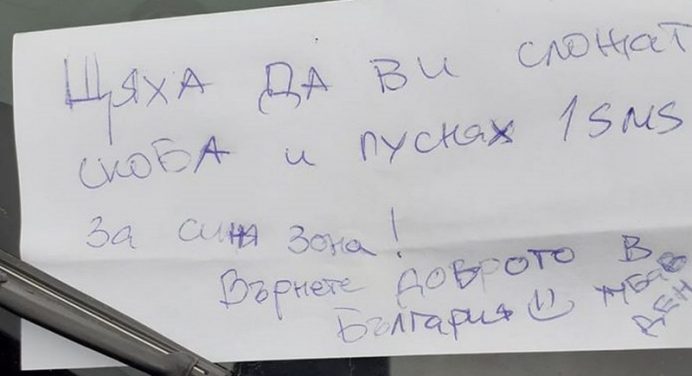 ЩЯХА ДА ВИ СЛОЖАТ
СКОБА и ПУСНАХ 1 SMS
За синя зона!
Върнете доброто в
България :)
ХУБАВ
ДЕН